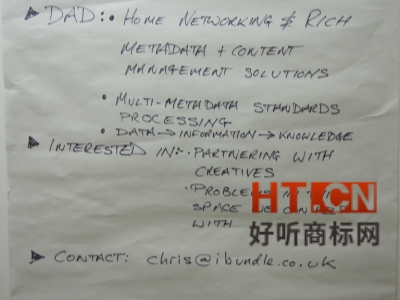 ▶ DAD: • HOME NETWORKING & RICH
METADATA + CONTENT
MANAGEMENT SOLUTIONS
• MULTI-METADATA STANDARDS
PROCESSING
• DATA → INFORMATION → KNOWLEDGE
▶ INTERESTED IN: • PARTNERING WITH
CREATIVES
• PROBLEMS IN
SPACE WE CAN
WITH
HT.CN
好听商标网
▶ CONTACT: chris@ibundle.co.uk